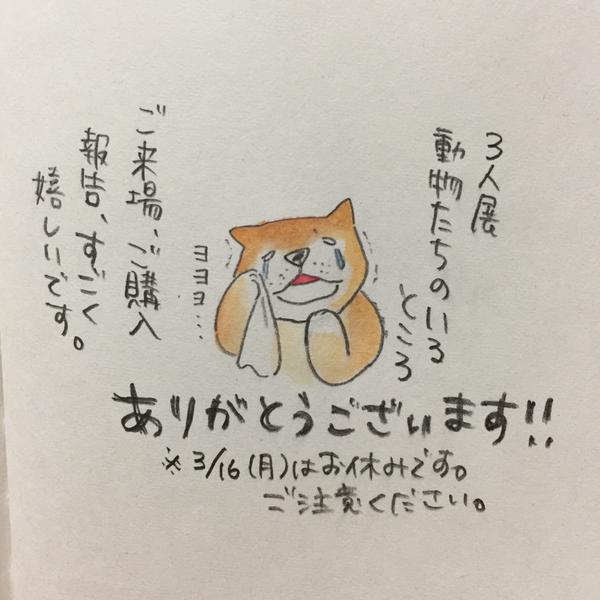 3人展
動物たちのいる
ところ
ご来場、ご購入
報告、すごく
嬉しいです。
ヨヨヨ...
ありがとうございます!!
※3/16(月)はお休みです。
ご注意ください。